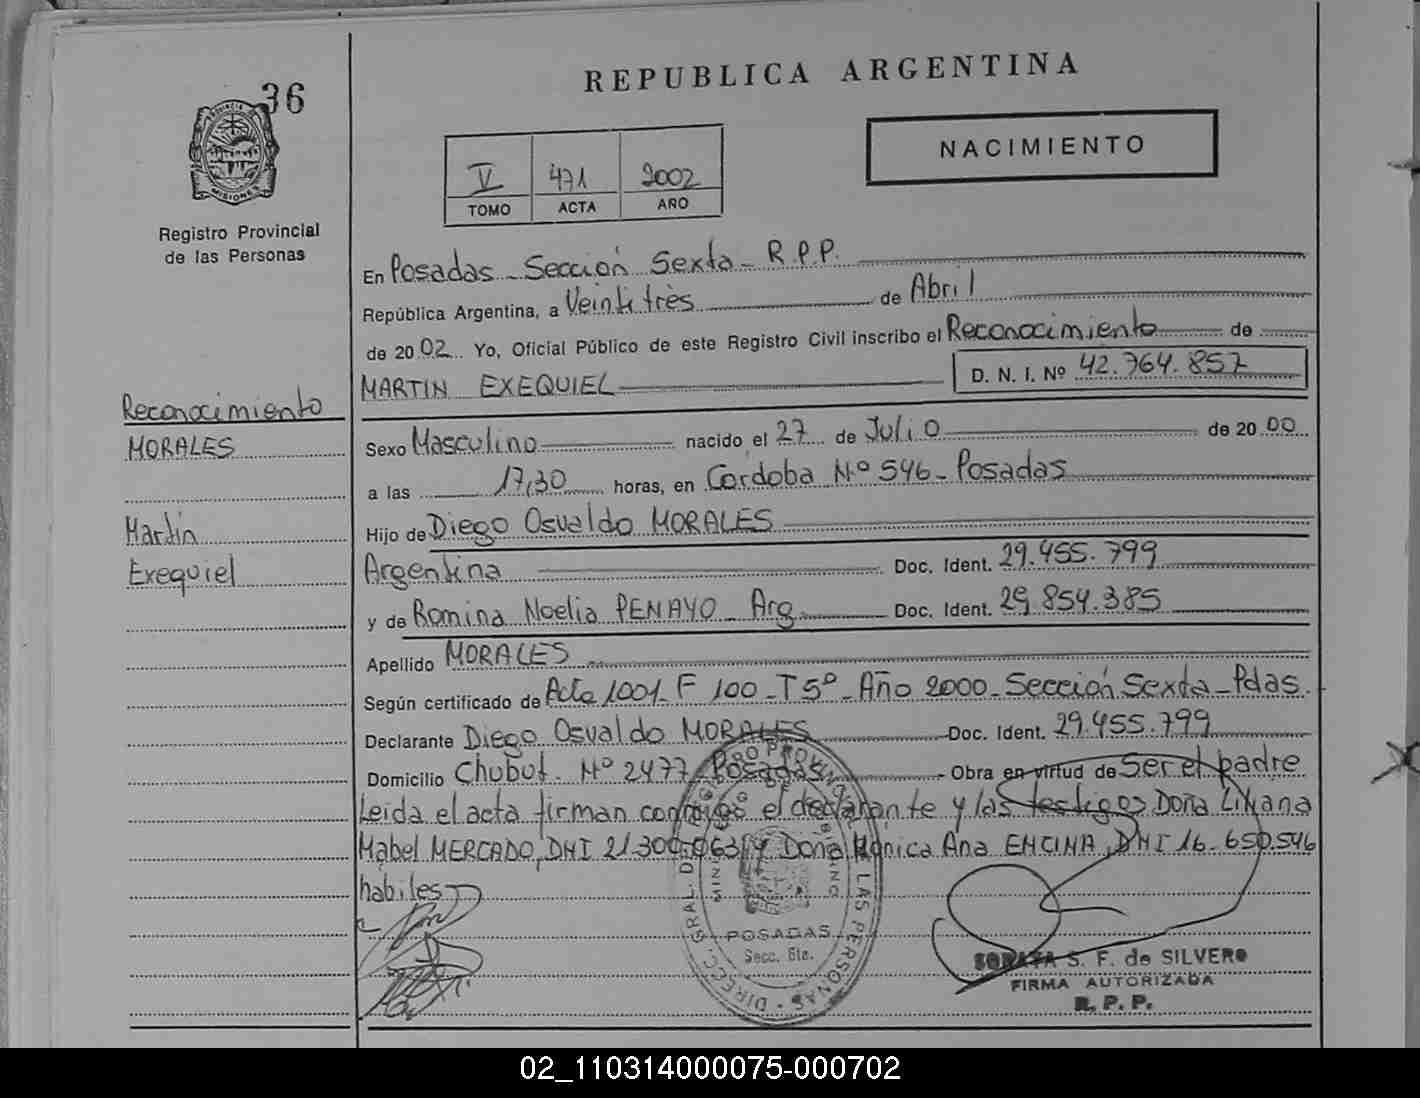 REPUBLICA ARGENTINA
36
PROVINCIA DE
MISIONES
Registro Provincial
de las Personas
NACIMIENTO
V 471 2002
TOMO ACTA AÑO
En Posadas - Sección Sexta - R.P.P.
República Argentina, a Veintitrés de Abril
de 2002 Yo, Oficial Público de este Registro Civil inscribo el Reconocimiento de
MARTIN EXEQUIEL D. N. I. Nº 42.764.857
Reconocimiento
MORALES
Martin
Exequiel
Sexo Masculino nacido el 27 de Julio de 2000
a las 17,30 horas, en Cordoba Nº 546 - Posadas
Hijo de Diego Osvaldo MORALES
Argentina Doc. Ident. 29.455.799
y de Romina Noelia PENAYO - Arg. Doc. Ident. 29.854.385
Apellido MORALES
Según certificado de Acta 1001 - F 100 - T 5º - Año 2000 - Sección Sexta - Pdas.
Declarante Diego Osvaldo MORALES Doc. Ident. 29.455.799
Domicilio Chubut Nº 2477 - Posadas - Obra en virtud de Ser el padre
Leida el acta firman conmigo el declarante y las testigos Doña Liliana
Mabel MERCADO, DNI 21.300.063 y Doña Mónica Ana ENCINA, DNI 16.650.546
hábiles
DIREC. GRAL. DEL REGISTRO PROVINCIAL DE LAS PERSONAS
POSADAS
Secc. 6ta.
SORAYA S. F. de SILVERO
FIRMA AUTORIZADA
R. P. P.
02_110314000075-000702